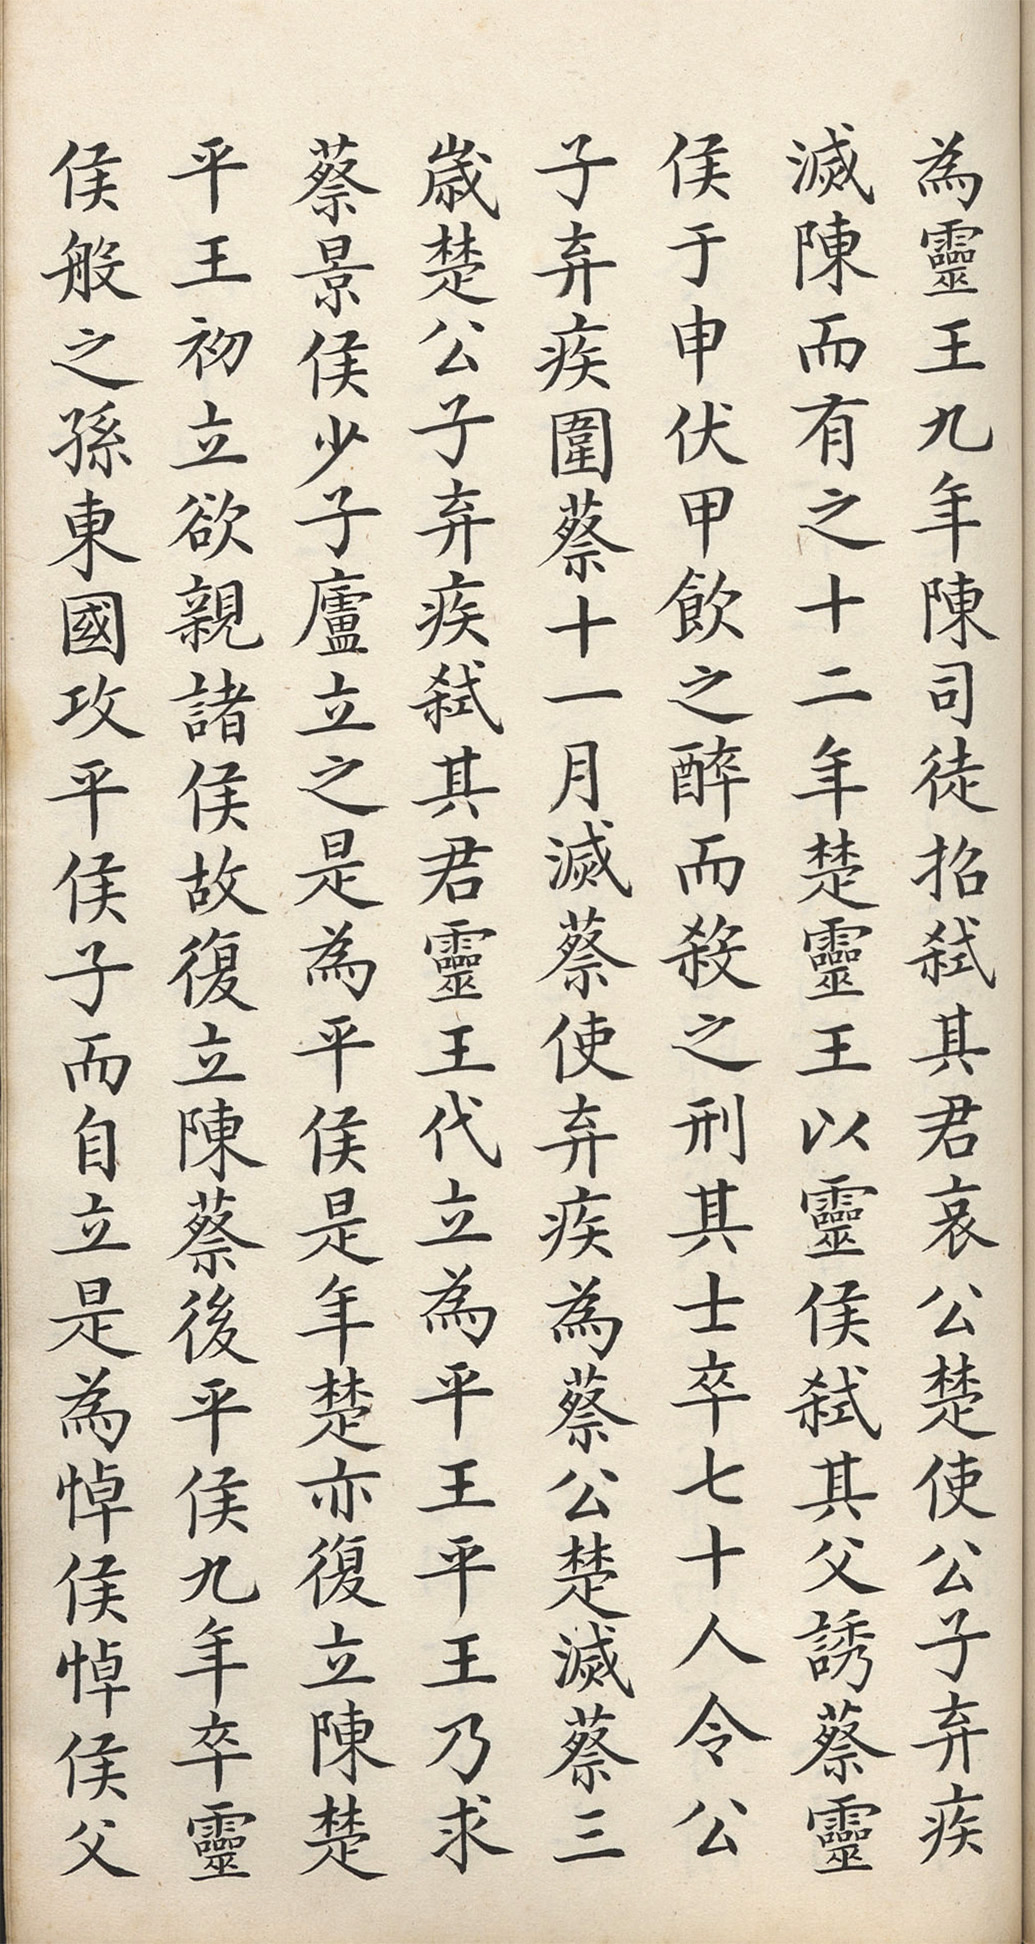 為靈王九年陳司徒招弑其君哀公楚使公子弃疾
滅陳而有之十二年楚靈王以靈侯弑其父誘蔡靈
侯于申伏甲飲之醉而殺之刑其士卒七十人令公
子弃疾圍蔡十一月滅蔡使弃疾為蔡公楚滅蔡三
歲楚公子弃疾弑其君靈王代立為平王平王乃求
蔡景侯少子廬立之是為平侯是年楚亦復立陳楚
平王初立欲親諸侯故復立陳蔡後平侯九年卒靈
侯般之孫東國攻平侯子而自立是為悼侯悼侯父